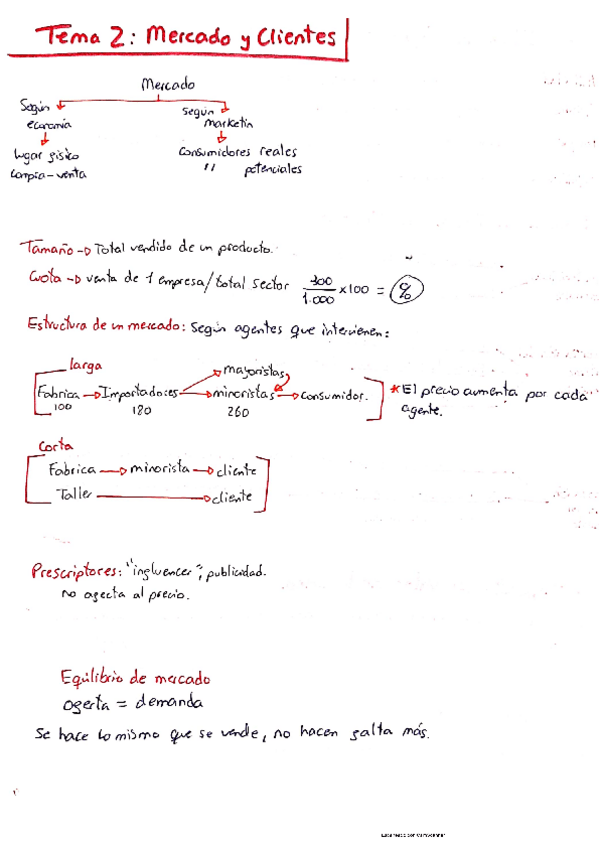 Tema 2: Mercado y Clientes
Mercado
Según economía
lugar físico compra-venta
según marketin
Consumidores reales
" potenciales
Tamaño → Total vendido de un producto.
Cuota → venta de 1 empresa/total sector 300/1.000 x100 = %
Estructura de un mercado: Según agentes que intervienen:
larga
mayoristas
Fabrica → Importadores → minoristas → Consumidor.
100 180 260
* El precio aumenta por cada agente.
Corta
Fabrica → minorista → cliente
Taller → cliente
Prescriptores: "influencer", publicidad.
no afecta al precio.
Equilibrio de mercado
oferta = demanda
Se hace lo mismo que se vende, no hacen falta más.